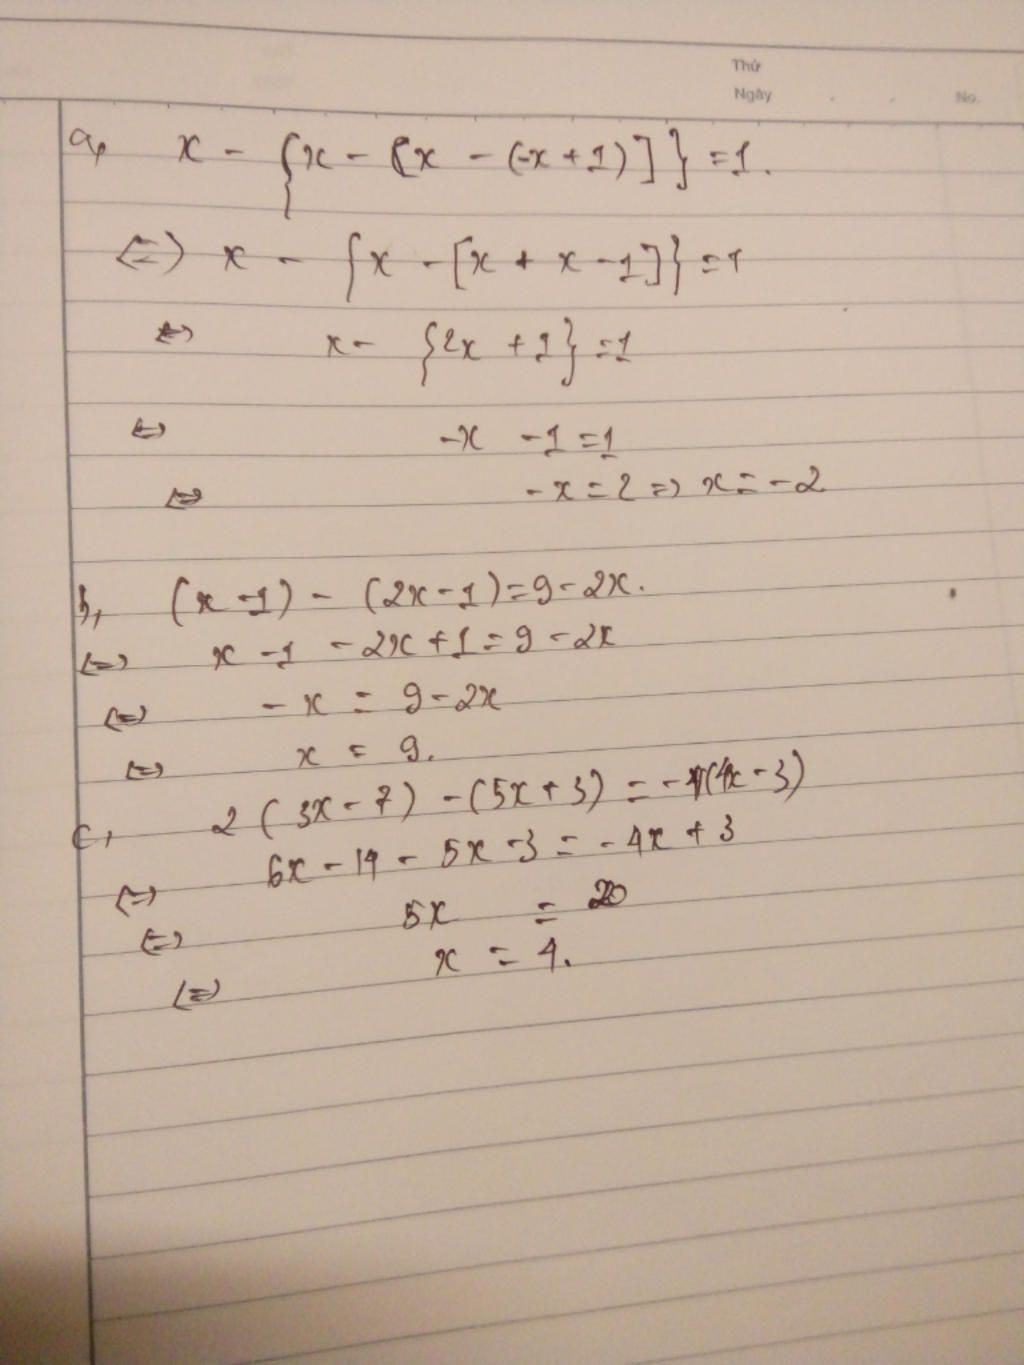 Thứ
Ngày No.
a, x - {x - [x - (-x + 1)]} = 1.
(=) x - {x - [x + x - 1]} = 1
(=) x - {2x + 1} = 1
(=) -x - 1 = 1
(=) -x = 2 => x = -2
b, (x - 1) - (2x - 1) = 9 - 2x.
(=) x - 1 - 2x + 1 = 9 - 2x
(=) - x = 9 - 2x
(=) x = 9.
c, 2 (3x - 7) - (5x + 3) = - (4x - 3)
(=) 6x - 14 - 5x - 3 = - 4x + 3
(=) 5x = 20
(=) x = 4.